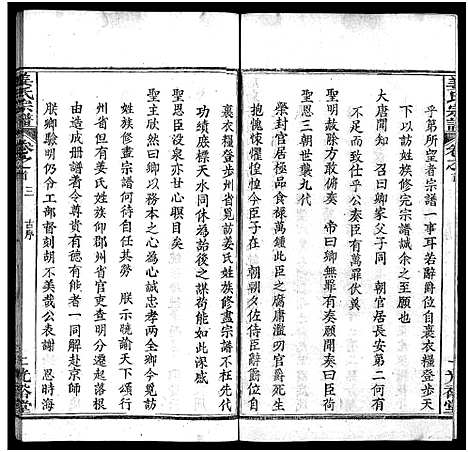 姜氏宗譜
卷之首
光裕堂
乎第所望者宗譜一事耳若辭爵位自裹衣糧登步天
下以訪姓族修完宗譜誠余之至願也
大唐聞知 召曰卿家父子同 朝官居長安第二何有
不足而致仕乎公奏臣有萬罪伏奚
聖明赦除方敢俯奏 帝曰卿無罪有奏願聞奏曰臣于
聖恩三朝世襲九代
榮封官居極品食祿萬鍾此臣之腐庸濫叨官爵死生
抱愧悚懼惶惶今臣子在 朝朝夕佐侍臣辭爵位自
裹衣糧登步州省見訪姜氏姓族修盡宗譜不枉先代
功績底標天水同休爲詒後之謀荷能如此深感
聖恩臣沒泉亦甘心瞑目矣
聖主欣然曰卿以務本之心爲心誠忠孝兩全卿今覓訪
姓族修盡宗譜何得任其勞 朕示曉諭天下頒行
州省但有姜氏姓族仰郡州省官吏查明分遷起落根
由造成册譜者令尊貴有德有能者一同解赴京師
朕卿驗明仍令工部督刻胡不美哉公表謝 恩時海
姜氏宗譜
卷之首
三
古序
光裕堂